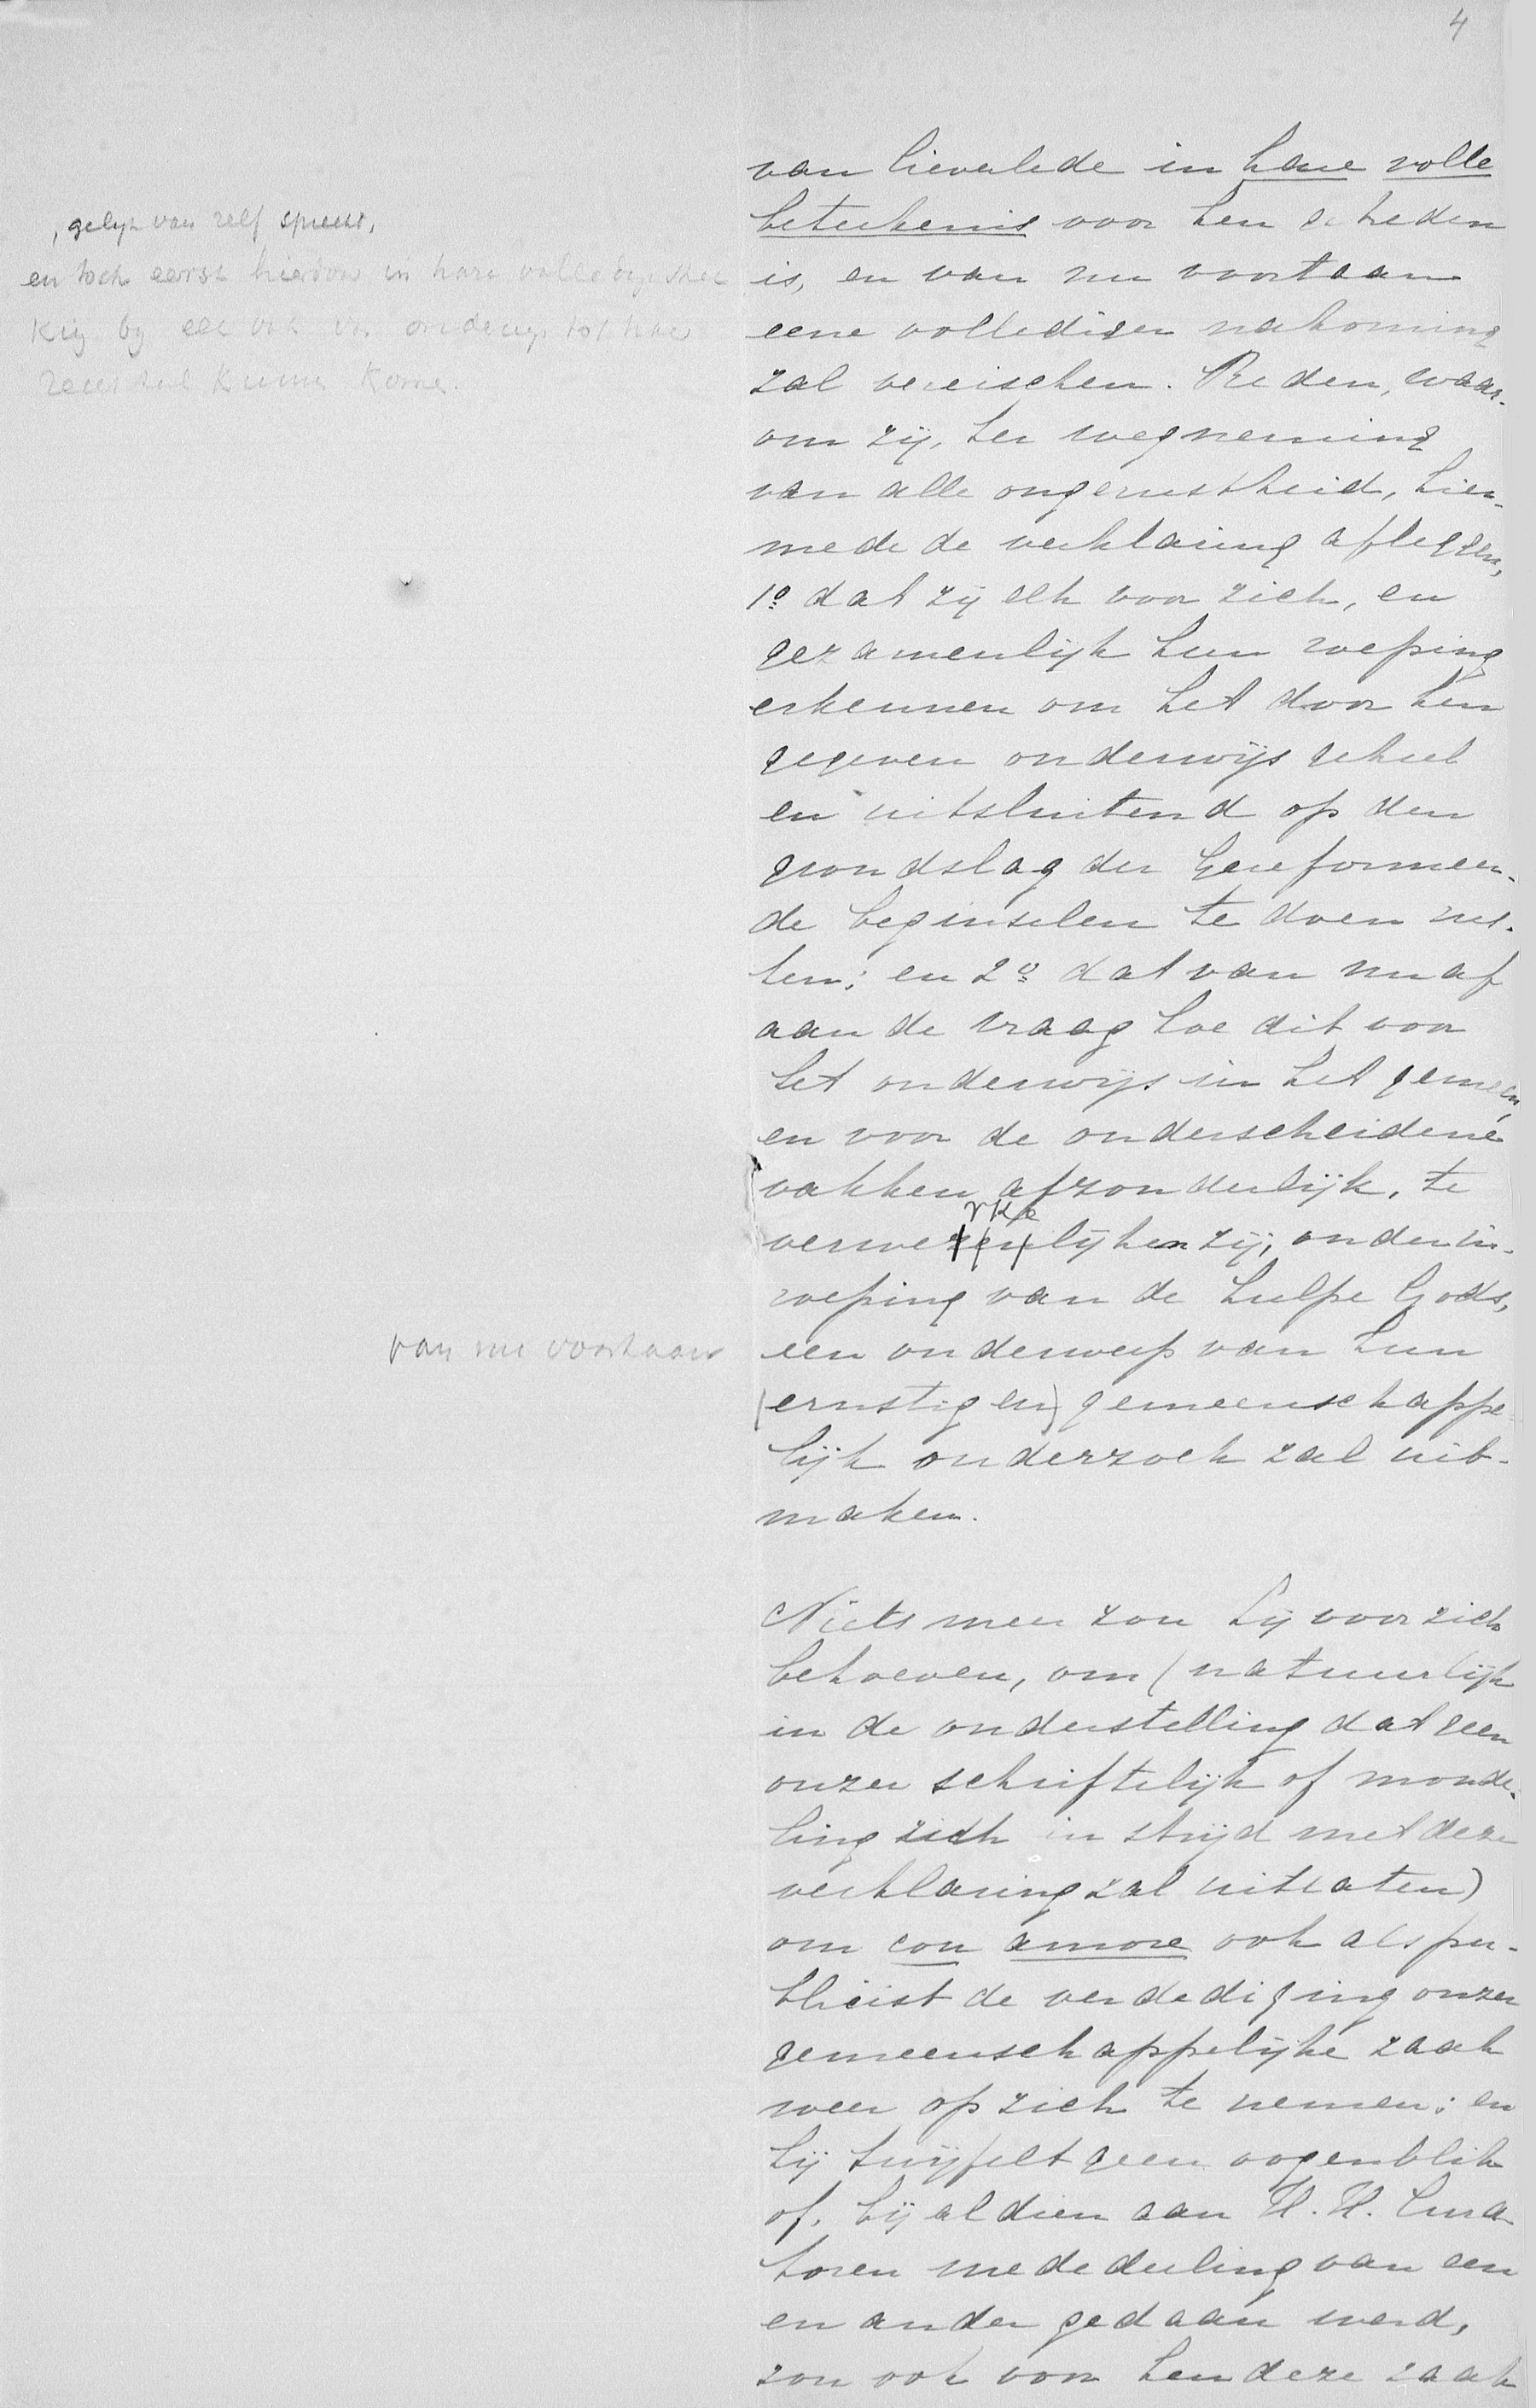 4
van lieverlede in hare volle
beteekenis voor hen getreden
is, en van nu voortaan
eene vollediger nakoming
zal vereischen. Reden, waar-
om zij, ter wegneming
van alle ongerustheid, hier-
mede de verklaring afleggen,
1o dat zij elk voor zich, en
gezamenlijk hun roeping
erkennen om het door hen
gegeven onderwijs geheel
en uitsluitend op den
grondslag der Gereformeer-
de beginselen te doen rus-
ten; en 2o dat van nu af
aan de vraag hoe dit voor
het onderwijs in het gemeen,
en voor de onderscheidene
vakken afzonderlijk, te
rke
verwezenlijken zij, onder in-
roeping van de hulpe Gods,
een onderwerp van hun
(ernstigen) gemeenschappe-
lijk onderzoek zal uit-
maken.
Niets meer zou hij voor zich
behoeven, om (natuurlijk
in de onderstelling dat geen
onzer schriftelijk of monde-
ling zich in strijd met deze
verklaring zal uitlaten)
om con amore ook als pu-
blicist de verdediging onzer
gemeenschappelijke zaak
weer op zich te nemen; en
hij twijfelt geen oogenblik
of, bijaldien aan H.H. Cura-
toren mededeeling van een
en ander gedaan werd,
zou ook voor hen deze zaak
, gelijk van zelf spreekt,
en toch eerst hierdoor in hare
van nu voortaan